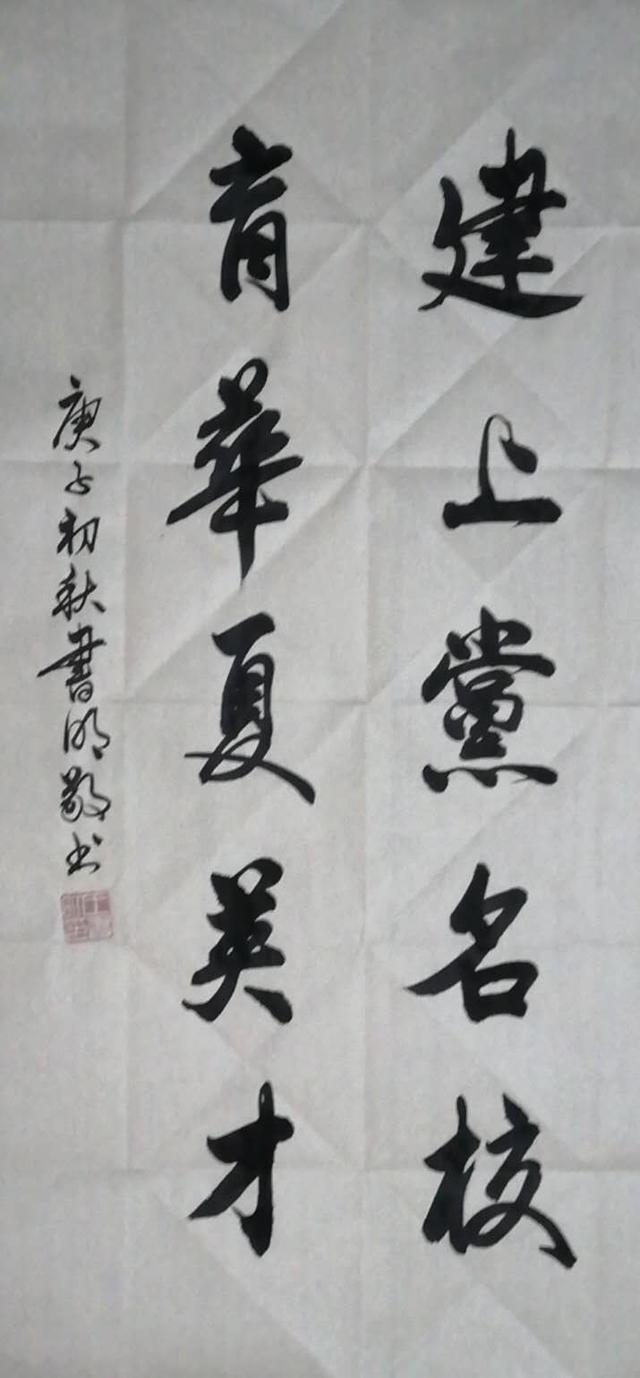 建上黨名校
育華夏英才
庚子初秋書明敬书